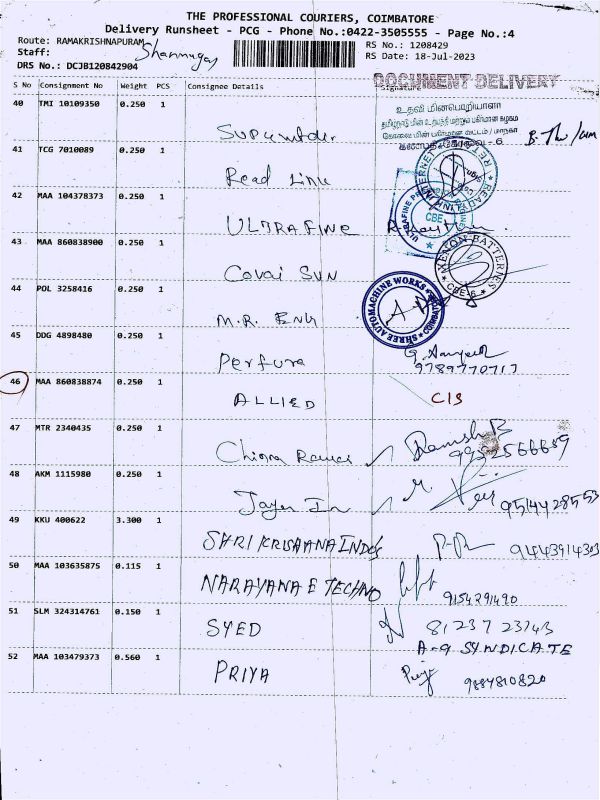 THE PROFESSIONAL COURIERS, COIMBATORE
Delivery Runsheet - PCG - Phone No.:0422-3505555 - Page No.:4
Route: RAMAKRISHNAPURAM
RS No.: 1208429
Staff: Shanmuga
RS Date: 18-Jul-2023
DRS No.: DCJB120842904
DOCUMENT DELIVERY
S No Consignment No Weight PCS Consignee Details Signature
40 TMI 10109350 0.250 1
உதவி மின்பொறியாளர்
41 TCG 7010089 0.250 1
Read Line
42 MAA 104378373 0.250 1
ULTRAFINE
CBE
43 MAA 860838900 0.250 1
Covai SUN
MENON BATTERIES
CBE-6
44 POL 3258416 0.250 1
M.R. ENG
SHREE AUTOMACHINE WORKS
45 DDG 4898480 0.250 1
Perfura
9789770717
46 MAA 860838874 0.250 1
ALLIED CIS
47 MTR 2340435 0.250 1
Ramesh B
48 AKM 1115980 0.250 1
49 KKU 400622 3.300 1
SHRI KRISHANA INDS
50 MAA 103635875 0.115 1
NARAYANA E TECHNO
9154291490
51 SLM 324314761 0.150 1
SYED
81237 23143
A-9 SYNDICATE
52 MAA 103479373 0.560 1
PRIYA Priya 9884810820